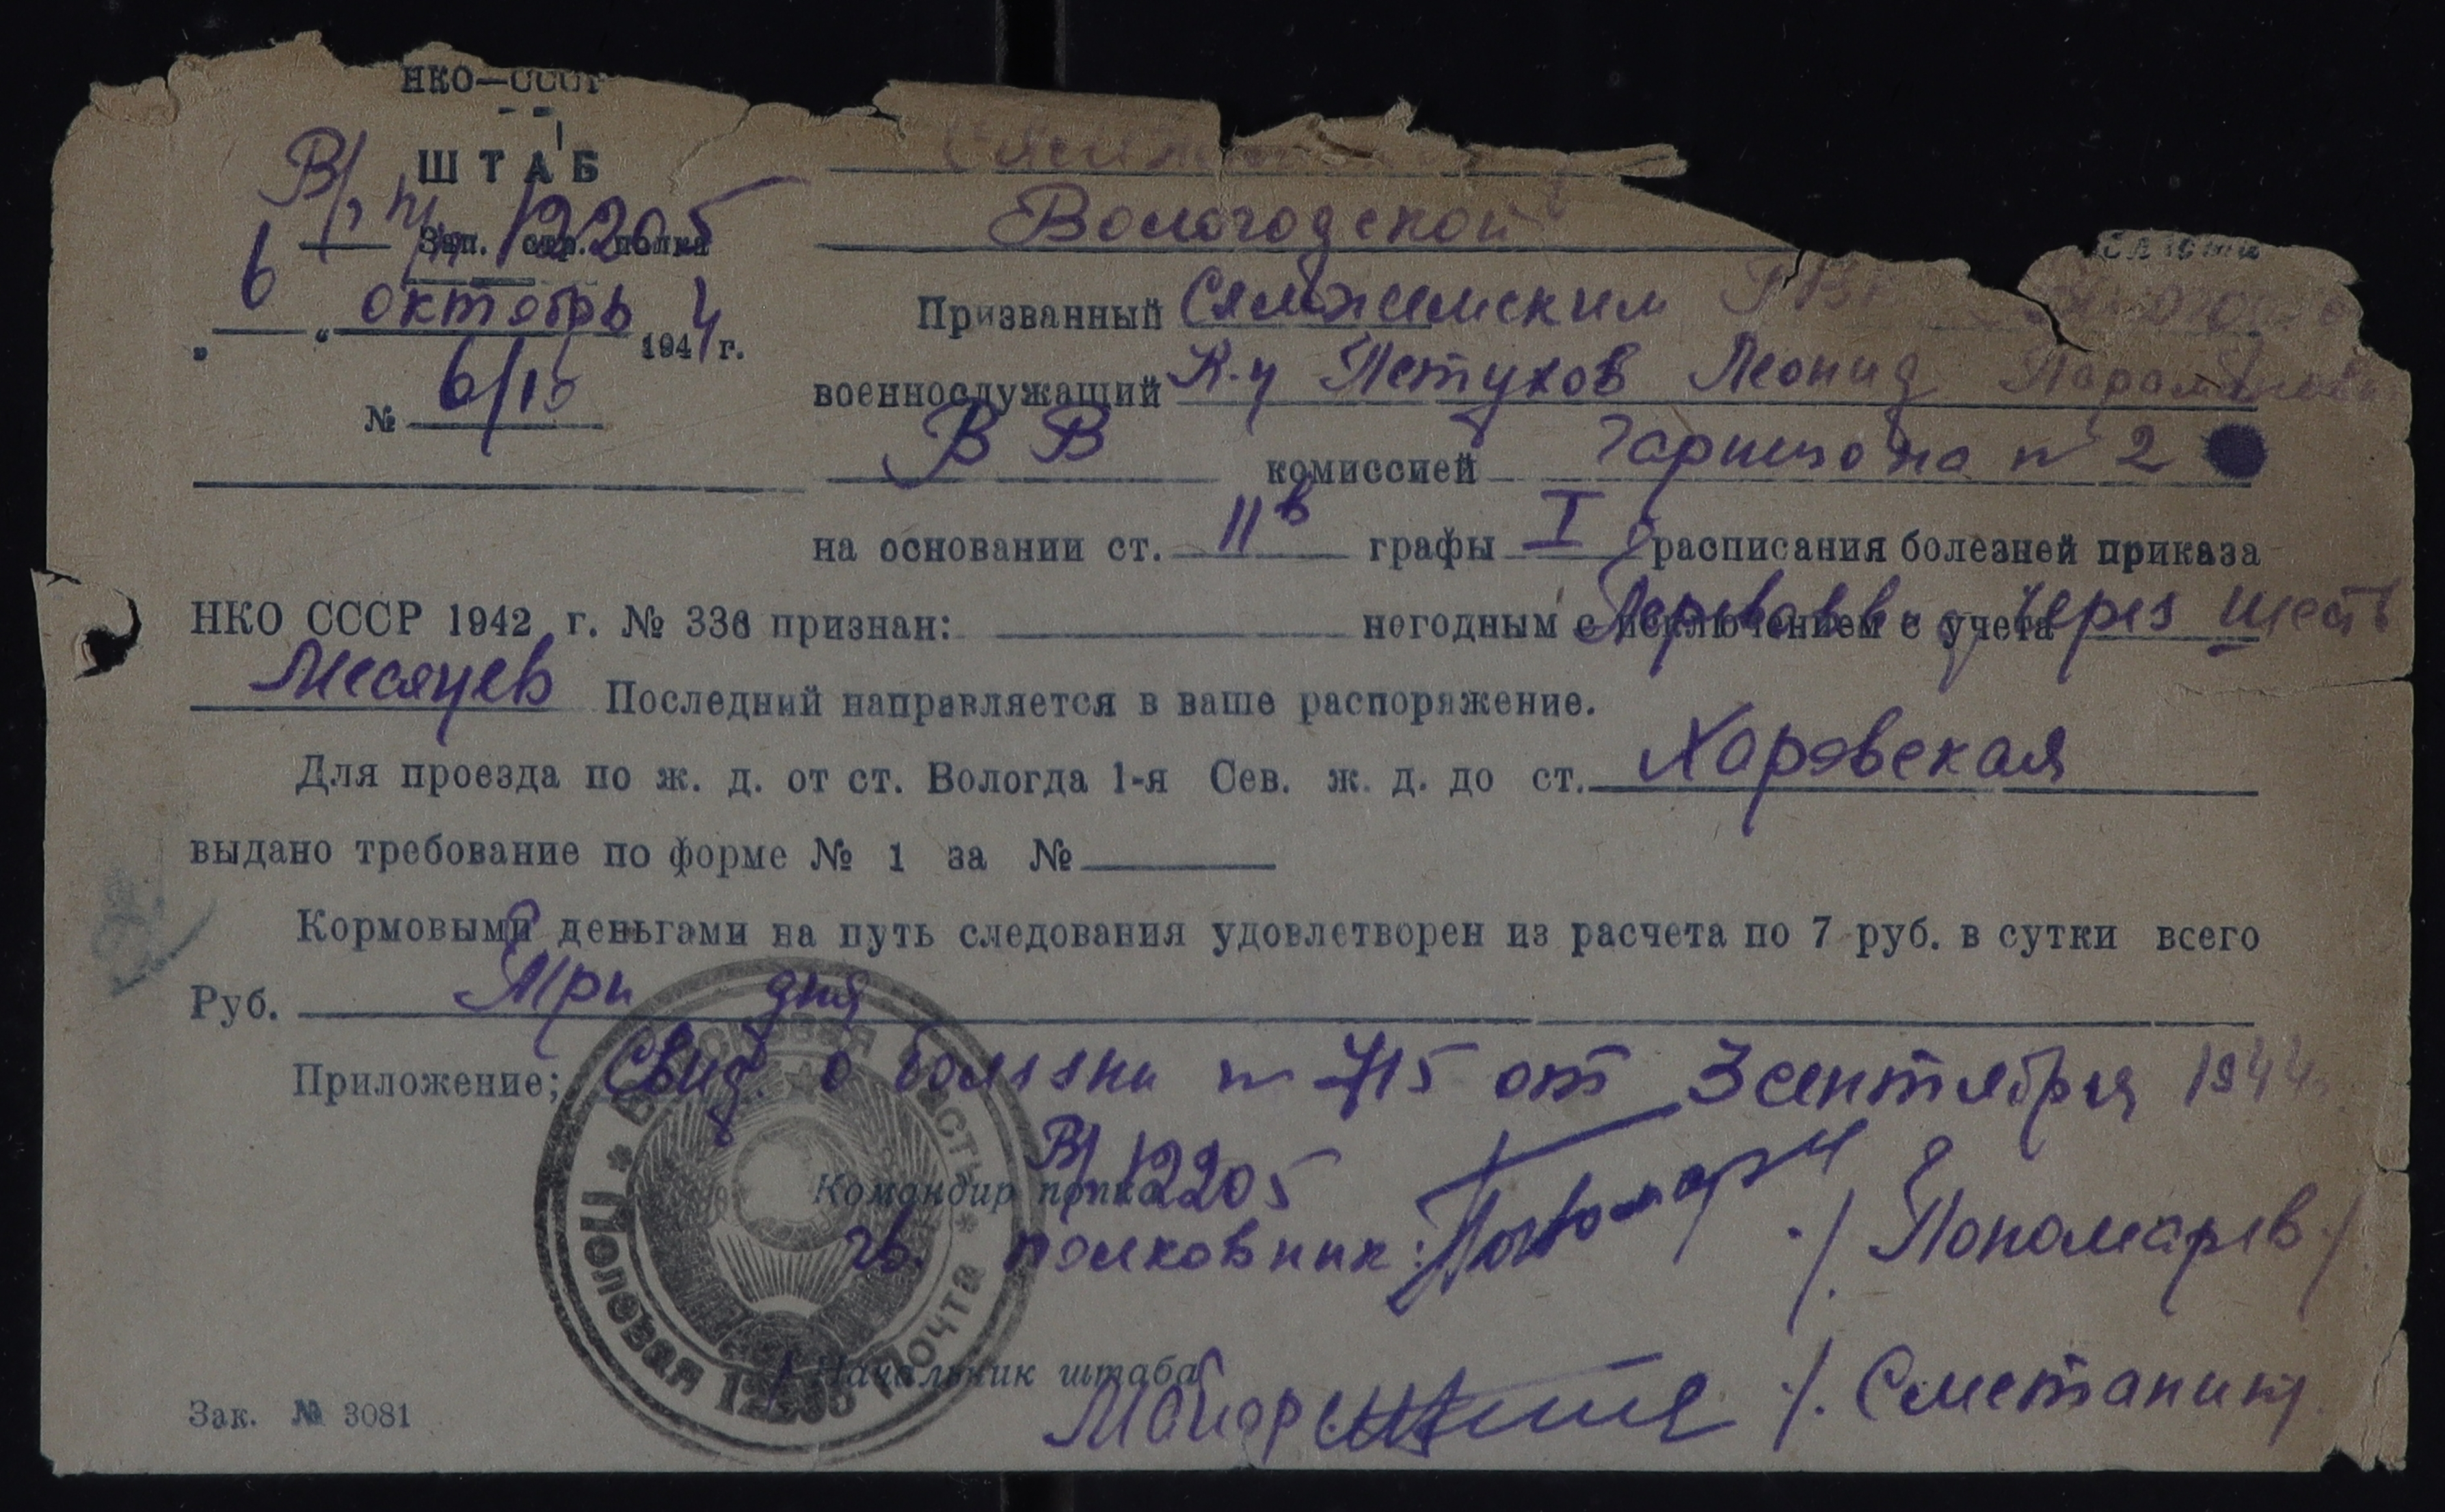 НКО—СССР
ШТАБ
В/ч п/п 12205
Зап. стр. полка
„6“ октябрь 1944 г.
№ 6/10
Вологодской
Призванный Сямженским РВК
военнослужащий К-ц Петухов Леонид
ВВ комиссией гарнизона № 2
на основании ст. 11в графы I расписания болезней приказа
НКО СССР 1942 г. № 336 признан: негодным с исключением с учета через шесть
месяцев Последний направляется в ваше распоряжение.
Для проезда по ж. д. от ст. Вологда 1-я Сев. ж. д. до ст. Харовская
выдано требование по форме № 1 за №
Кормовыми деньгами на путь следования удовлетворен из расчета по 7 руб. в сутки всего
Руб. При дня
Приложение; Свид. о болезни № 715 от 3 сентября 1944
В/ч 12205
Командир полка
гв. полковник: /Пономарев/
Начальник штаба
Майор /Сметанин/
Войсковая часть * Полевая почта 12205 *
Зак. № 3081